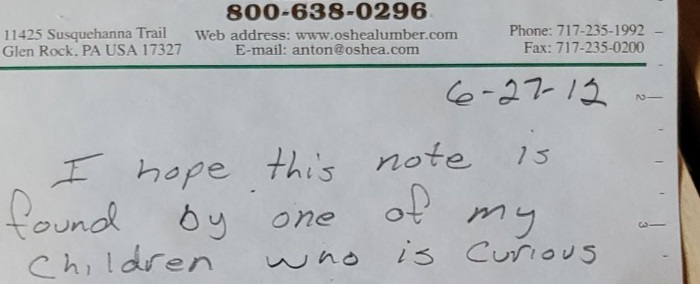 800-638-0296
11425 Susquehanna Trail Web address: www.oshealumber.com Phone: 717-235-1992
Glen Rock, PA USA 17327 E-mail: anton@oshea.com Fax: 717-235-0200
6-27-12
2
I hope this note is
found by one of my
3
children who is curious